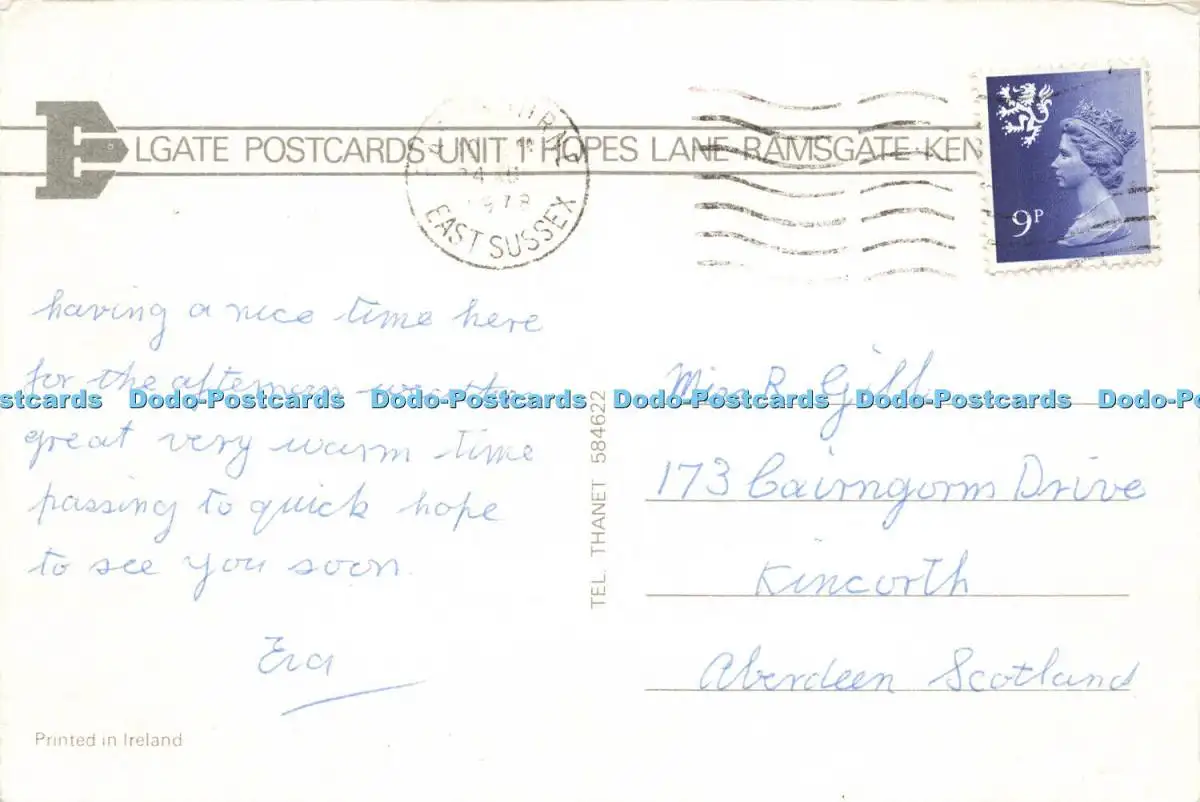 ELGATE POSTCARDS UNIT 1 HOPES LANE RAMSGATE KEN
EAST SUSSEX
1978
9P
having a nice time here
for the afternoon weather
great very warm time
passing to quick hope
to see you soon.
Eva
Printed in Ireland
TEL. THANET 584622
Miss R. Gill
173 Cairngorm Drive
Kincorth
Aberdeen Scotland
Dodo-Postcards Dodo-Postcards Dodo-Postcards Dodo-Postcards